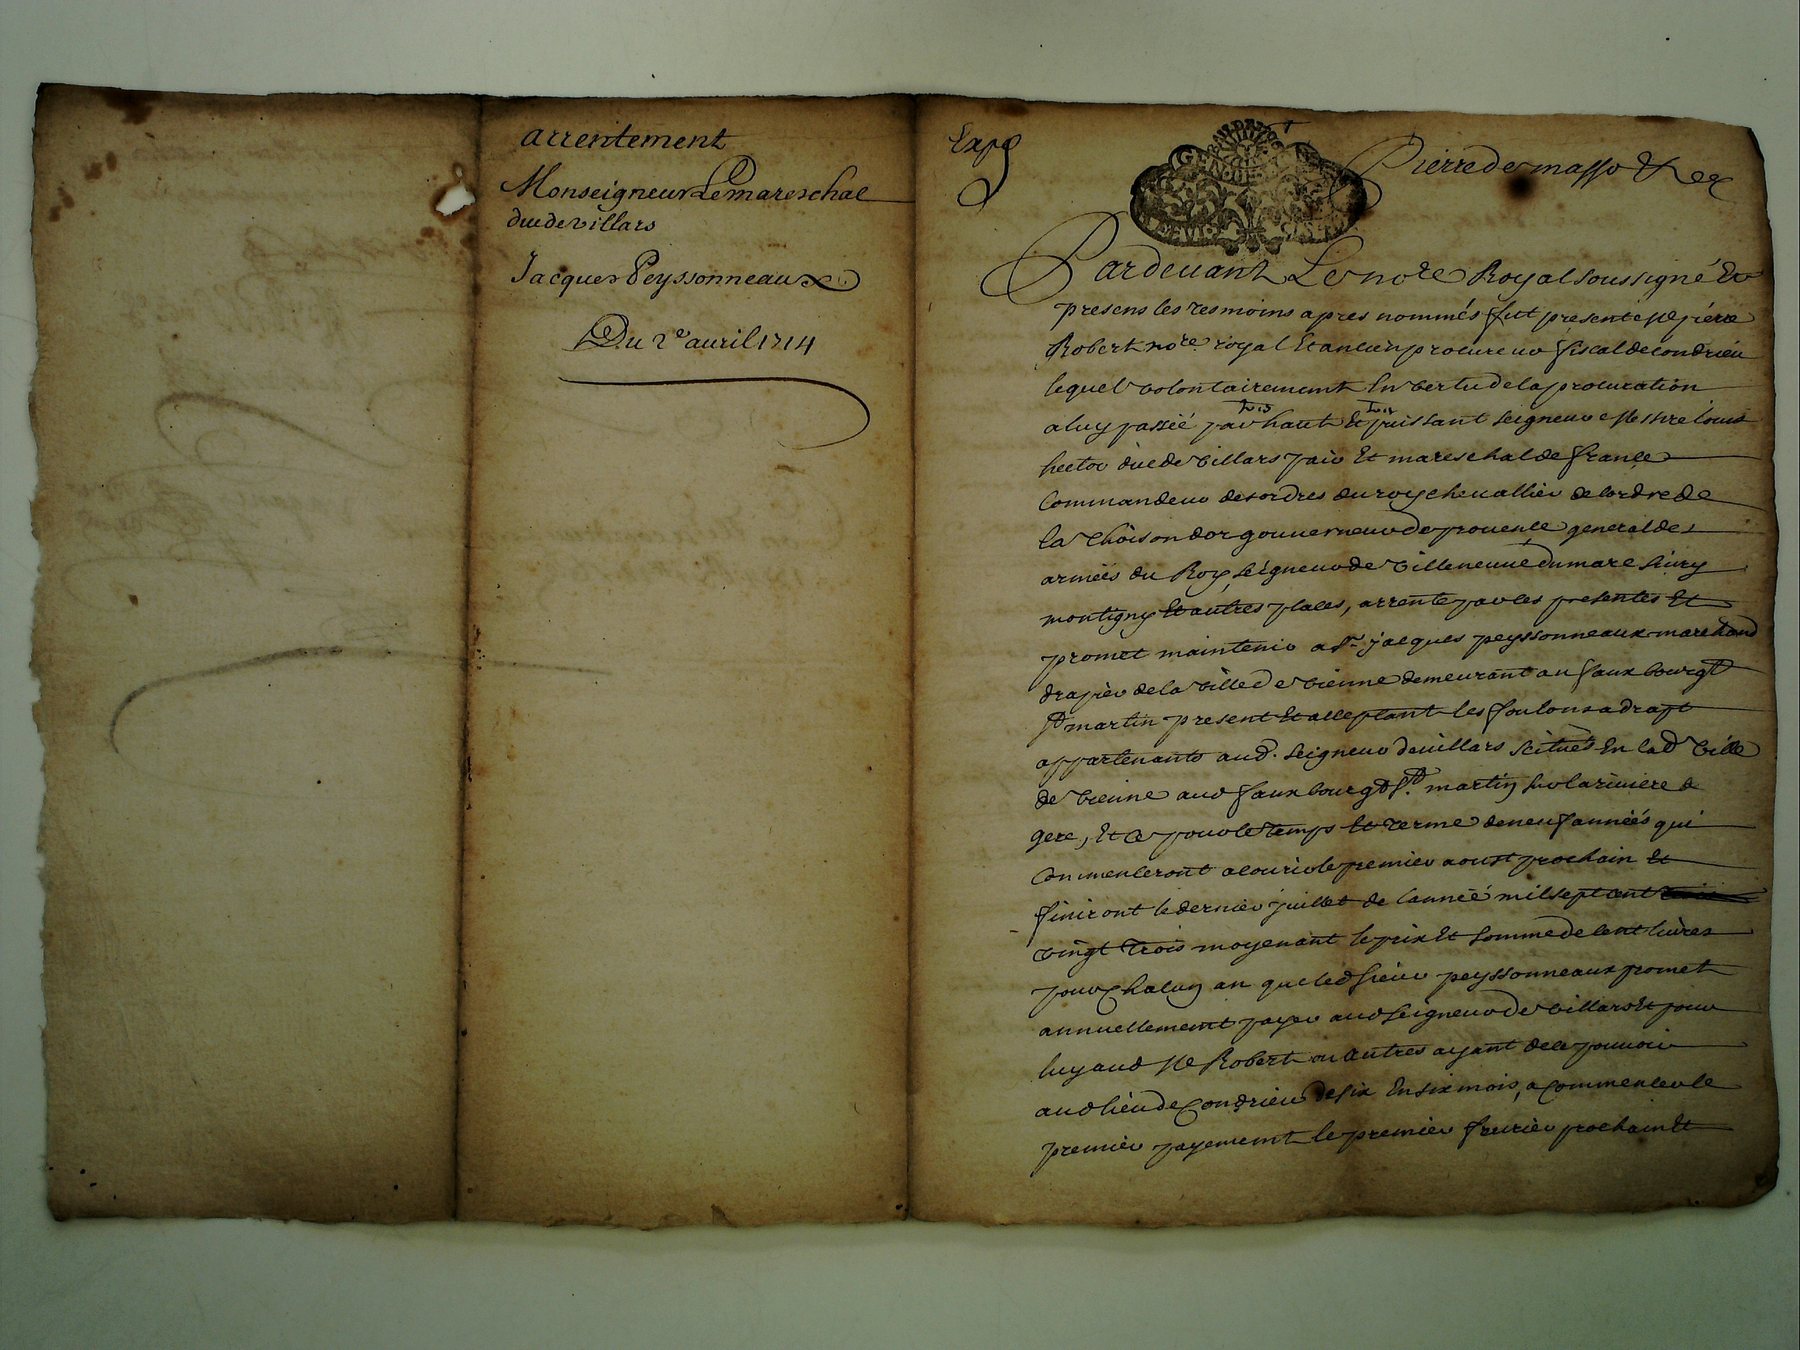 arrentement
Monseigneur Le mareschal
duc de villars
Jacques Peyssonneaux
Du 2e auril 1714
Expé
Pierre de masso &
Pardeuant Le nore Royal soussigné Et
presens les tesmoins apres nommés fut present Me pierre
Robert nore royal Et ancien procureur fiscal de condrieu
lequel volontairement En vertu de la procuration
a luy passeé par haut Et puissant seigneur Messire louis
hector duc de villars pair Et mareschal de france
Commandeur des ordres du roy cheuallier de lordre de
la Thoison dor gouuerneur de prouence general des
armeés du Roy, seigneur de villeneuue
montigny Et autres places, arrente par les presentes Et
promet maintenir a sr jacques peyssonneaux marchand
drapier de la ville de vienne demeurant au faux bourgt
st martin present Et acceptant les foulons a drapt
appartenants aud. seigneur de villars scitués En lad ville
de vienne aud faux bourgt st martin sur la riuiere de
gere, Et ce pour le temps Et terme de neuf anneés qui
Commenceront a courir le premier aoust prochain Et
finiront le dernier juillet de lanneé mil sept cent
vingt trois moyenant le prix Et somme de cent liures
pour chacun an que led sieur peyssonneaux promet
annuellement payer aud seigneur de villars Et pour
luy aud Me Robert ou autres ayant de ce pouuoir
aud lieu de Condrieu de six En six mois, a commencer le
premier payement le premier feurier prochain Et